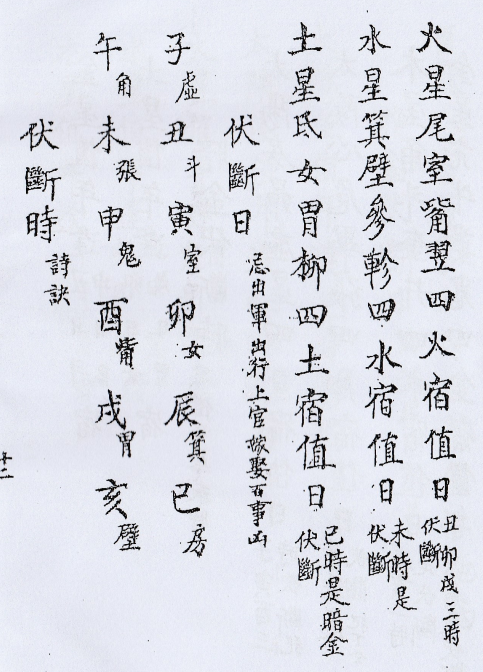 火星尾室觜翌四火宿值日丑卯戌三時伏斷
水星箕壁參軫四水宿值日未時是伏斷
土星氐女胃柳四土宿值日巳時是暗金伏斷
伏斷日忌出軍出行上官嫁娶百事凶
子虛丑斗寅室卯女辰箕巳房
午角未張申鬼酉觜戌胃亥壁
伏斷時詩訣
十二